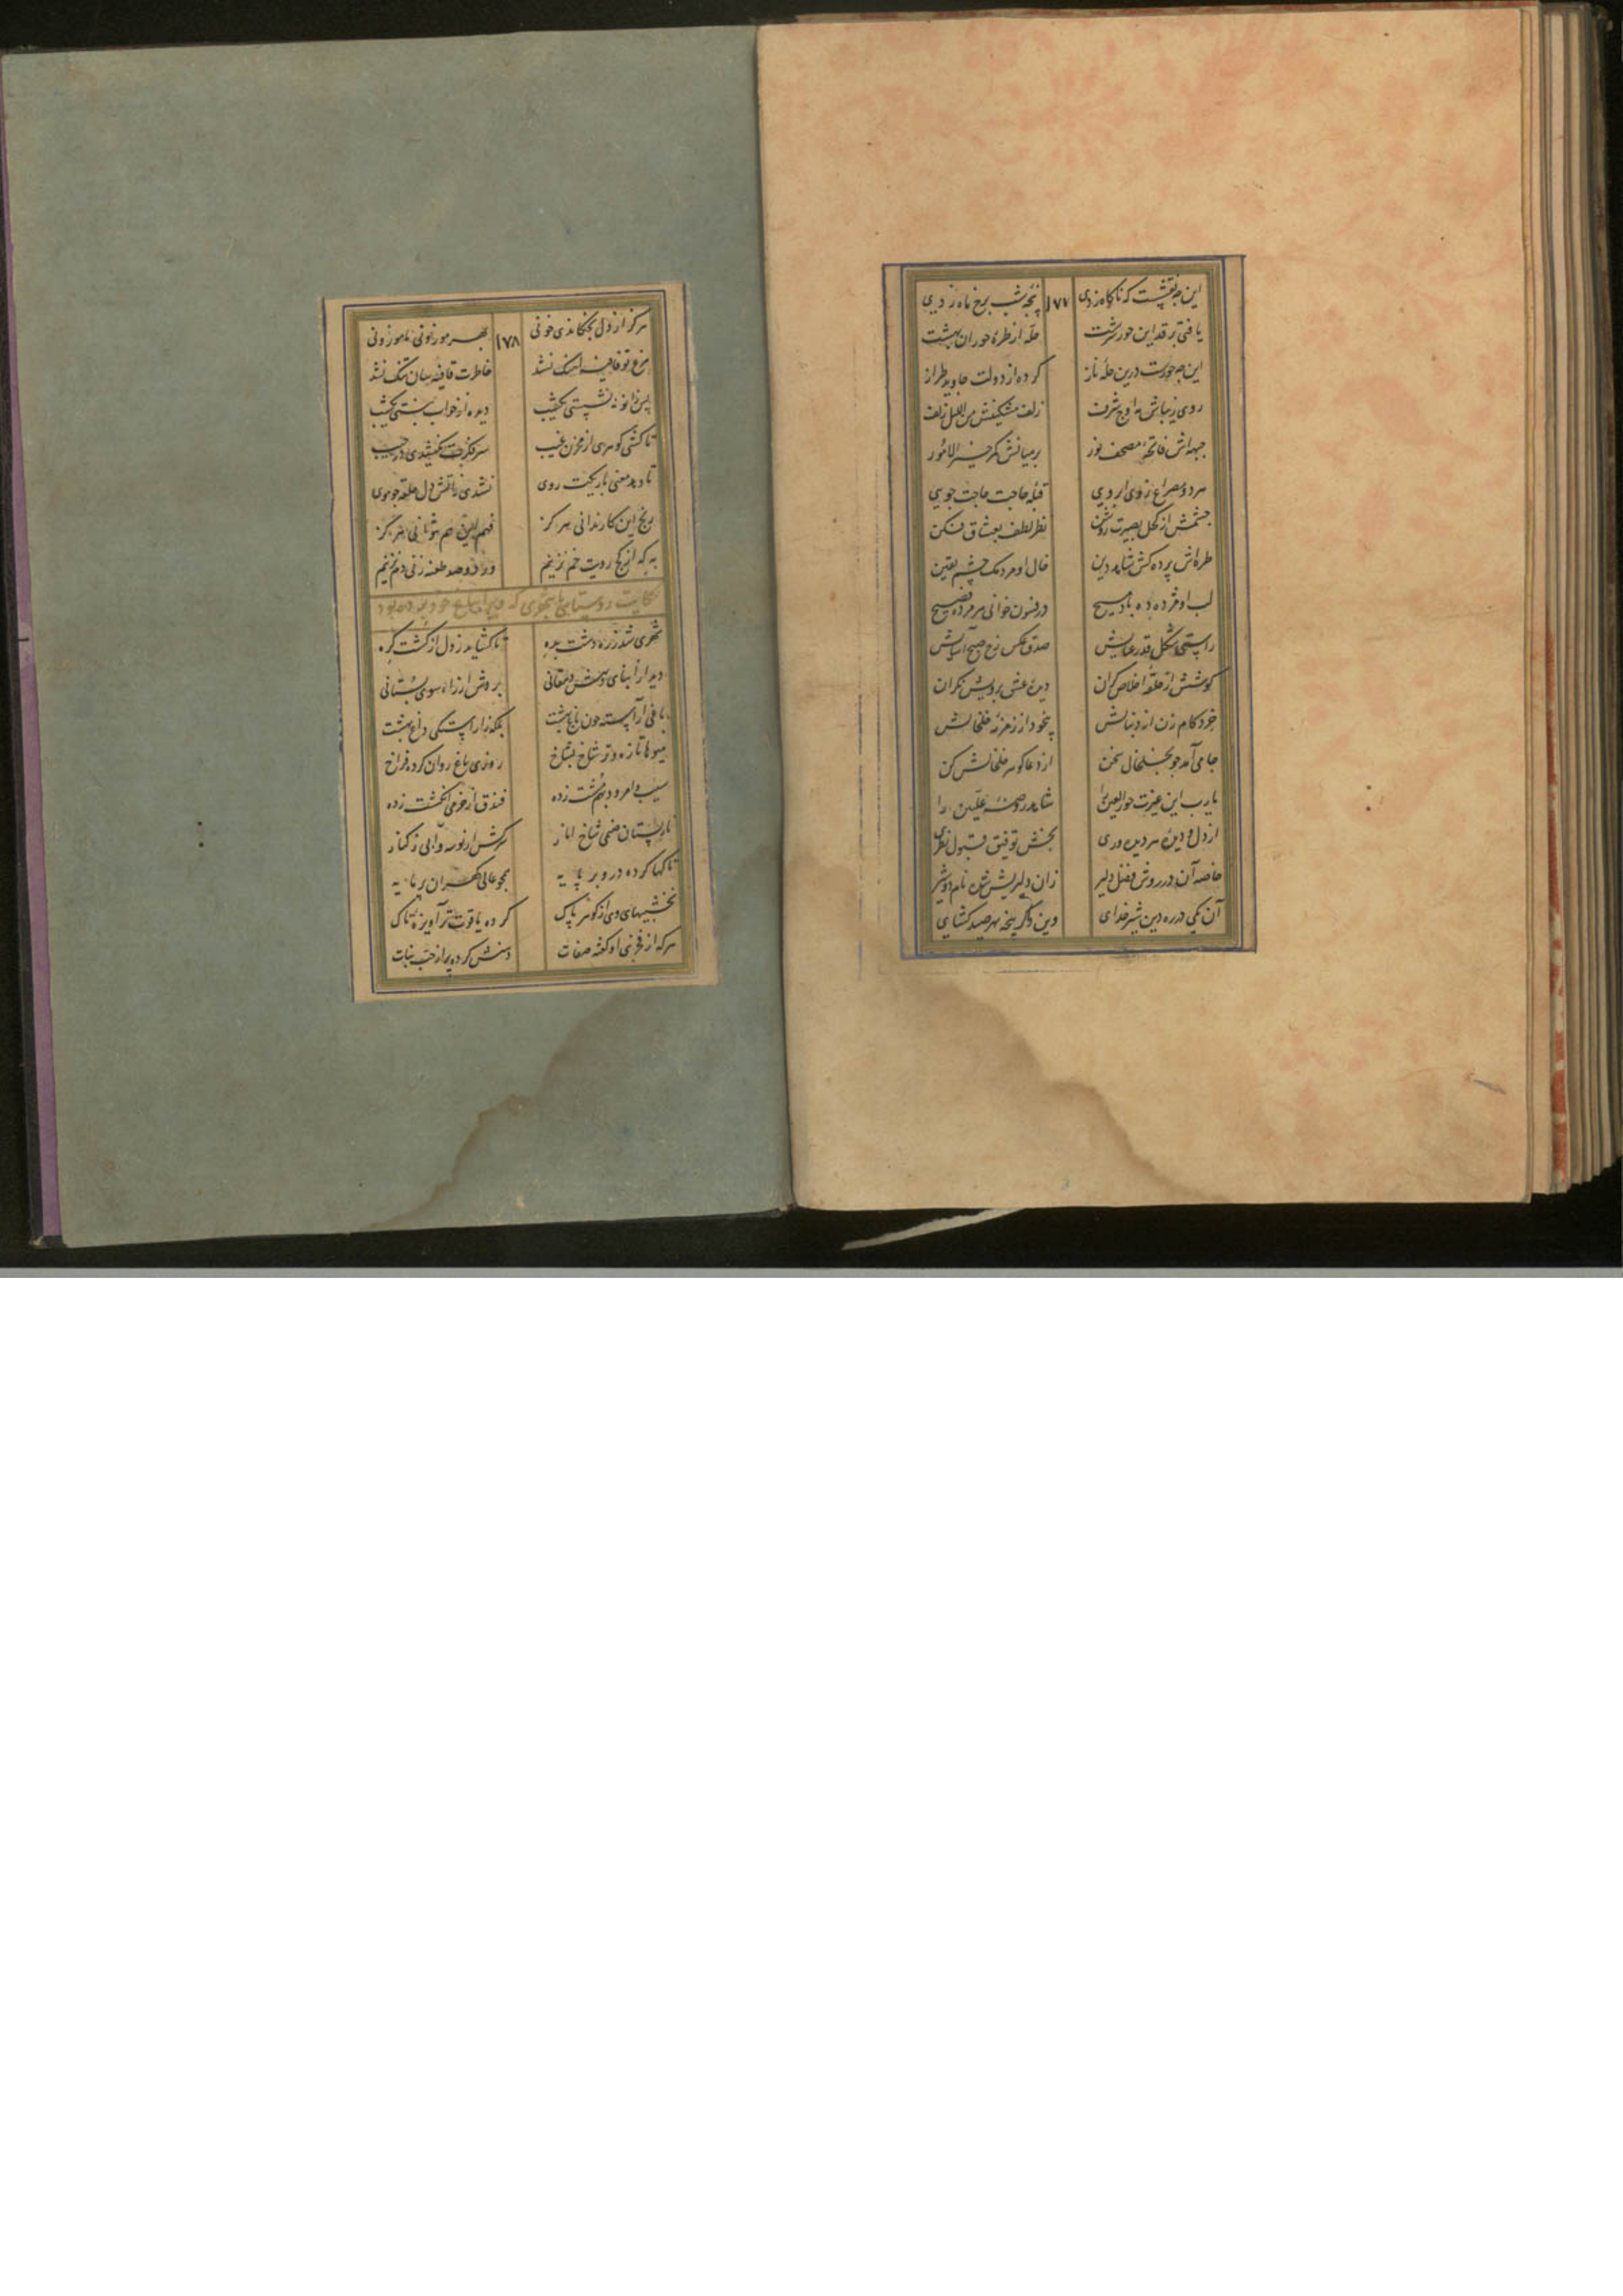 این چه نقشیست که ناگاه زدی ۱۷۷ پنجهٔ شب برخ ماه زدی
یافتی بر قد این حور سرشت حله از طرهٔ حوران بهشت
این چه حورست درین حلهٔ ناز کرده از دولت جاوید طراز
روی زیباش مه اوج شرف زلف مشکینش من اللیل زلف
جبهه‌اش فاتحهٔ مصحف نور بر میانش کمر خیر الامور
هر دو مصراع ز وی ابرویی قبلهٔ حاجت حاجت جویی
چشمش از کحل بصیرت روشن نظر لطف بعشاق فکن
طره‌اش پرده کش شاهد دین خال او مردمک چشم یقین
لب او مژده ده باد مسیح در فسون خوانی هر مرده فصیح
راستی شکل قد رعنایش صدق عکس رخ صبح آسایش
گوشش از حلقهٔ اخلاص گران دیدهٔ عشق برویش نگران
خرد کام زن از دنبالش بیخود از زمزمهٔ خلخالش
جامی آمد چو بخلخال سخن از دعا گوهر خلخالش کن
یا رب این غیرت حور العین را شاهد روضهٔ علیین را
از دل و دیدهٔ هر دیده وری بخش توفیق قبول نظری
خاصه آن در روش فضل دلیر زان دلیریش شده نام دو شیر
آن یکی در ره دین شیر خدای وین دگر پنجه بهر صید گشای
هرگز از دل نچکاندی خونی ۱۷۸ بهر موزونی ناموزونی
مرغ تو قافیه آهنگ نشد خاطرت قافیه سان تنگ نشد
پس زانو ننشستی یکشب دیده از خواب نبستی یکشب
تا کشی گوهری از مخزن غیب سر فکرت نکشیدی در جیب
تا دهد معنی باریکت روی نشدی ز آتش دل حلقه چو موی
رنج این کار ندانی هرگز فهم این هم نتوانی هرگز
به که از کج رویت خم نزنیم ور دو صد طعنه زنی دم نزنیم
حکایت روستایی با شهری که ویرا بباغ خود برده بود
شهری شد ز ره دشت بده تا گشاید ز دل از گشت گره
دید از ابنای دهش دهقانی بردش از راه سوی بستانی
باغی آراسته چون باغ بهشت بلکه ز آراستگی داغ بهشت
میوها تازه و تر شاخ بشاخ روزی باغ روان کرده فراخ
سیب و امرود بهم مشت زده فندق از خرمی انگشت زده
نار پستان صنمی شاخ انار
تاکها کرده در و بر پایه همچو عالی گهران پر مایه
بخشیهای وی از گوهر پاک کرده یاقوت تر آویزهٔ تاک
هر که از فخری او گفته صفات دهنش کرده پر از حب نبات